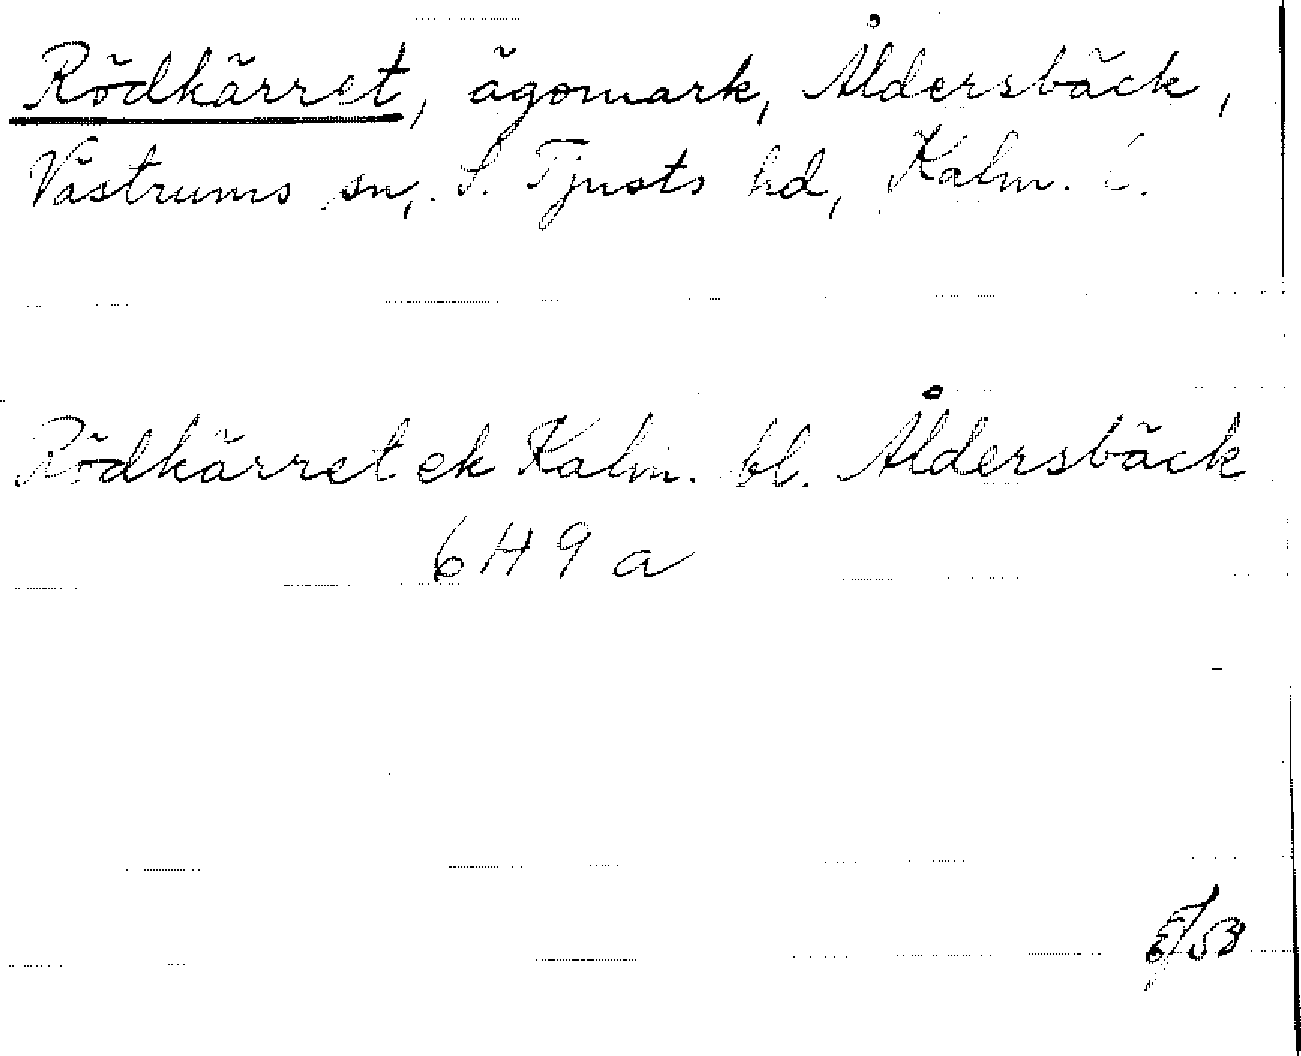 Rödkärret, ägomark, Åldersbäck,
Västrums sn, S. Tjusts hd, Kalm. l.
Rödkärret ek Kalm. bl. Åldersbäck
6H9a